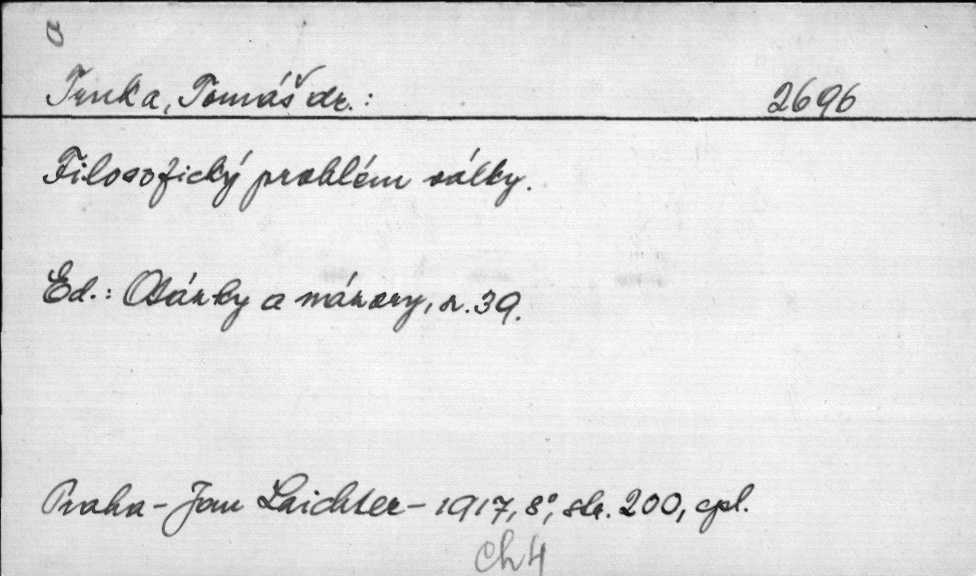 Trnka, Tomáš dr.: 2696
Filosofický problém války.
Ed.: Otázky a názory, s. 39.
Praha - Jan Laichter - 1917, 8°, str. 200, cpl.
Ch 4